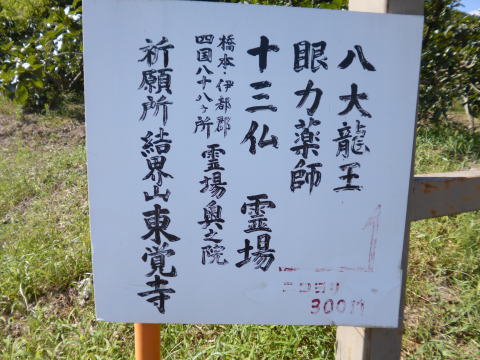 八大龍王
眼力薬師
十三仏 霊場
橋本・伊都郡
四国八十八ヶ所 霊場奥之院
祈願所 結界山東覚寺
300m